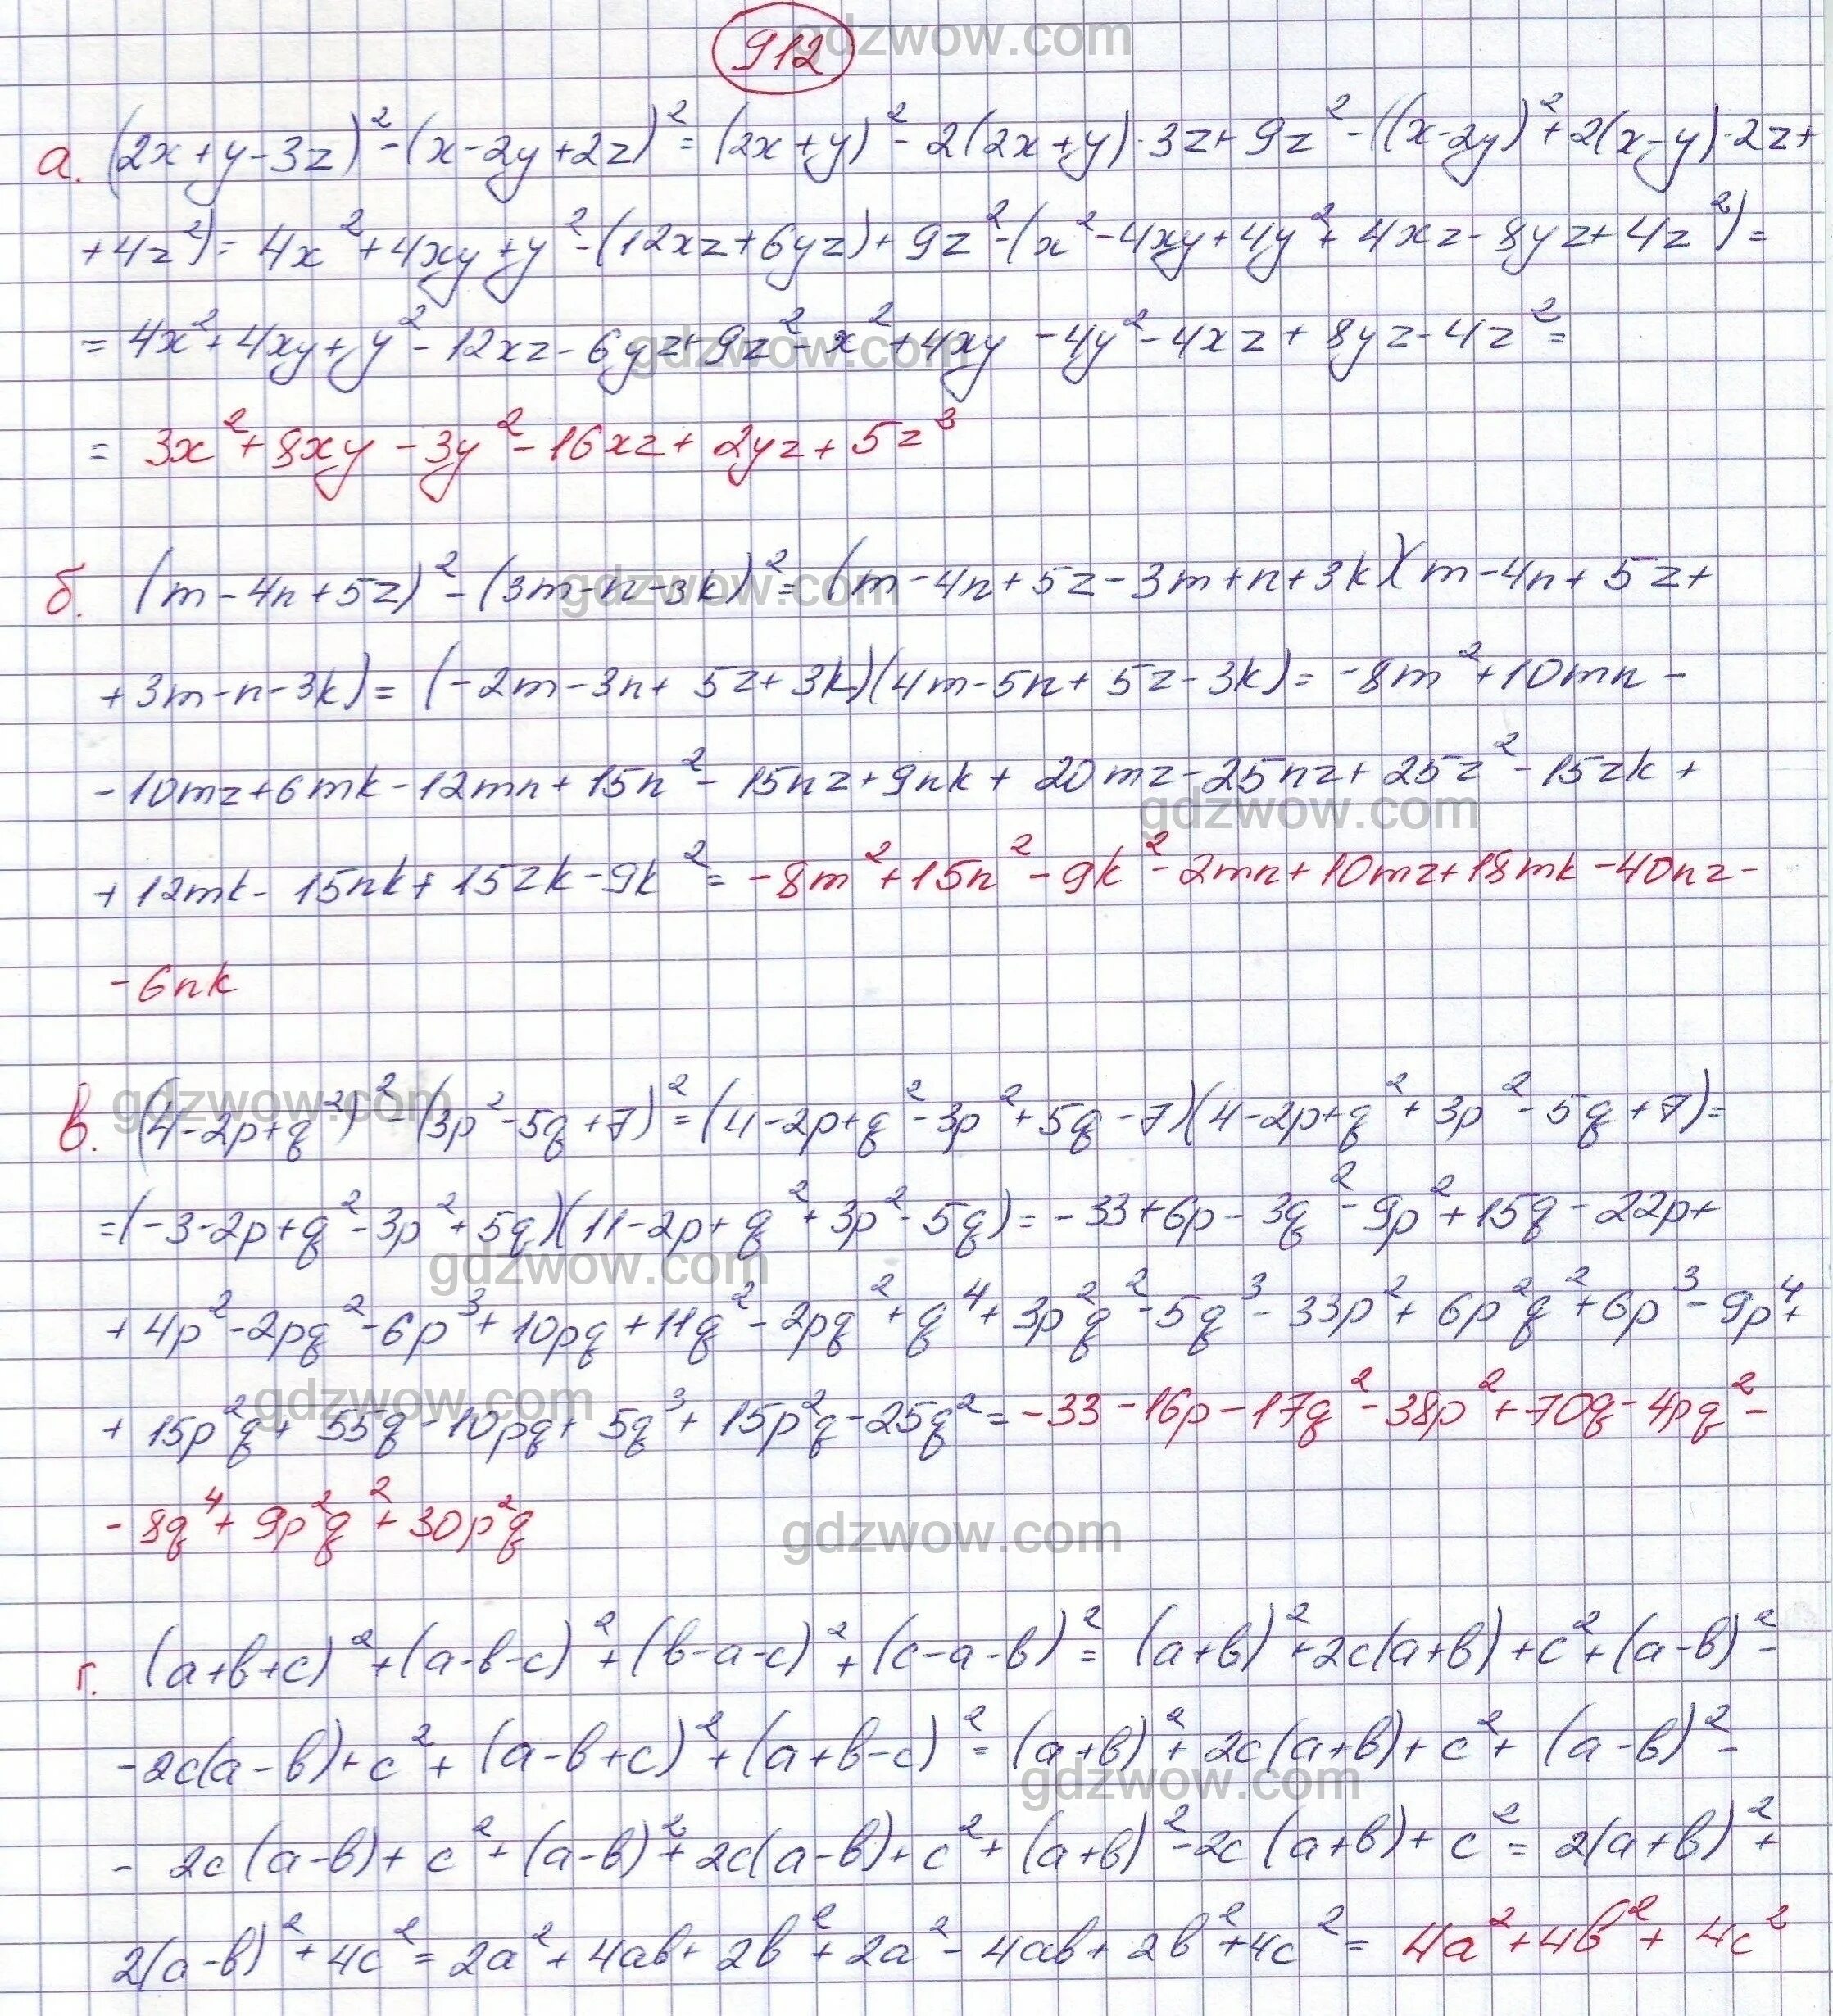 912
а. (2x+y-3z)²-(x-2y+2z)²=(2x+y)²-2(2x+y)·3z+9z²-((x-2y)²+2(x-y)·2z+
+4z²)=4x²+4xy+y²-(12xz+6yz)+9z²-(x²-4xy+4y²+4xz-8yz+4z²)=
=4x²+4xy+y²-12xz-6yz+9z²-x²+4xy-4y²-4xz+8yz-4z²=
=3x²+8xy-3y²-16xz+2yz+5z³
б. (m-4n+5z)²-(3m-n-3k)²=(m-4n+5z-3m+n+3k)(m-4n+5z+
+3m-n-3k)=(-2m-3n+5z+3k)(4m-5n+5z-3k)=-8m²+10mn-
-10mz+6mk-12mn+15n²-15nz+9nk+20mz-25nz+25z²-15zk+
+12mk-15nk+15zk-9k²=-8m²+15n²-9k²-2mn+10mz+18mk-40nz-
-6nk
в. (4-2p+q²)²-(3p²-5q+7)²=(4-2p+q²-3p²+5q-7)(4-2p+q²+3p²-5q+7)=
=(-3-2p+q²-3p²+5q)(11-2p+q²+3p²-5q)=-33+6p-3q²-9p²+15q-22p+
+4p²-2pq²-6p³+10pq+11q²-2pq²+q⁴+3p²q²-5q³-33p²+6p²q²+6p³-9p⁴+
+15p²q+55q-10pq+5q³+15p²q-25q²=-33-16p-17q²-38p²+70q-4pq²-
-8q⁴+9p²q²+30p²q
г. (a+b+c)²+(a-b-c)²+(b-a-c)²+(c-a-b)²=(a+b)²+2c(a+b)+c²+(a-b)²-
-2c(a-b)+c²+(a-b+c)²+(a+b-c)²=(a+b)²+2c(a+b)+c²+(a-b)²-
-2c(a-b)+c²+(a-b)²+2c(a-b)+c²+(a+b)²-2c(a+b)+c²=2(a+b)²+
2(a-b)²+4c²=2a²+4ab+2b²+2a²-4ab+2b²+4c²=4a²+4b²+4c²
gdzwow.com
gdzwow.com
gdzwow.com
gdzwow.com
gdzwow.com
gdzwow.com
gdzwow.com
gdzwow.com
gdzwow.com